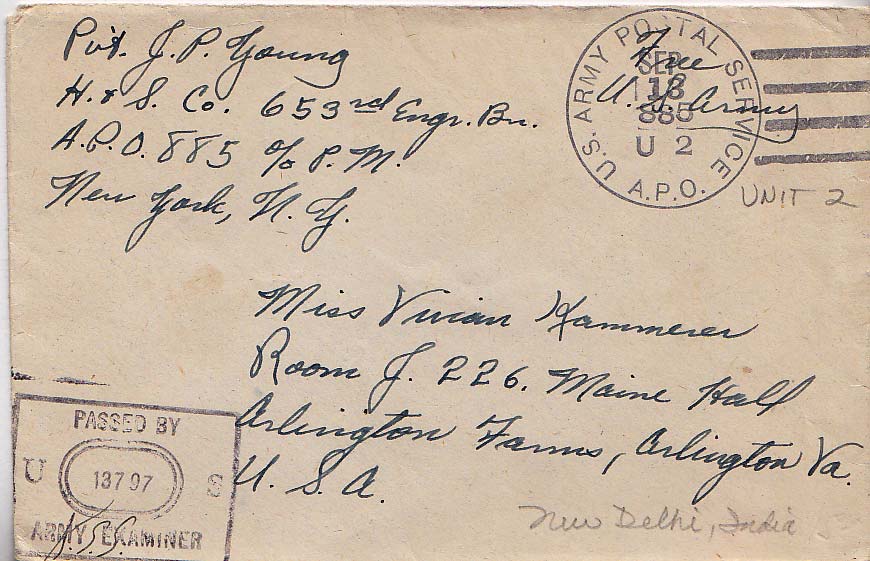 Pvt. J. P. Young
H. & S. Co. 653rd Engr. Bn.
A.P.O. 885 c/o P. M.
New York, N. Y.
Free
U. S. Army
U.S. ARMY POSTAL SERVICE
SEP
13
885
U 2
A.P.O.
UNIT 2
Miss Vivian Kammerer
Room J. 226. Maine Hall
Arlington Farms, Arlington Va.
U. S. A.
PASSED BY
U 13797 S
ARMY EXAMINER
New Delhi, India